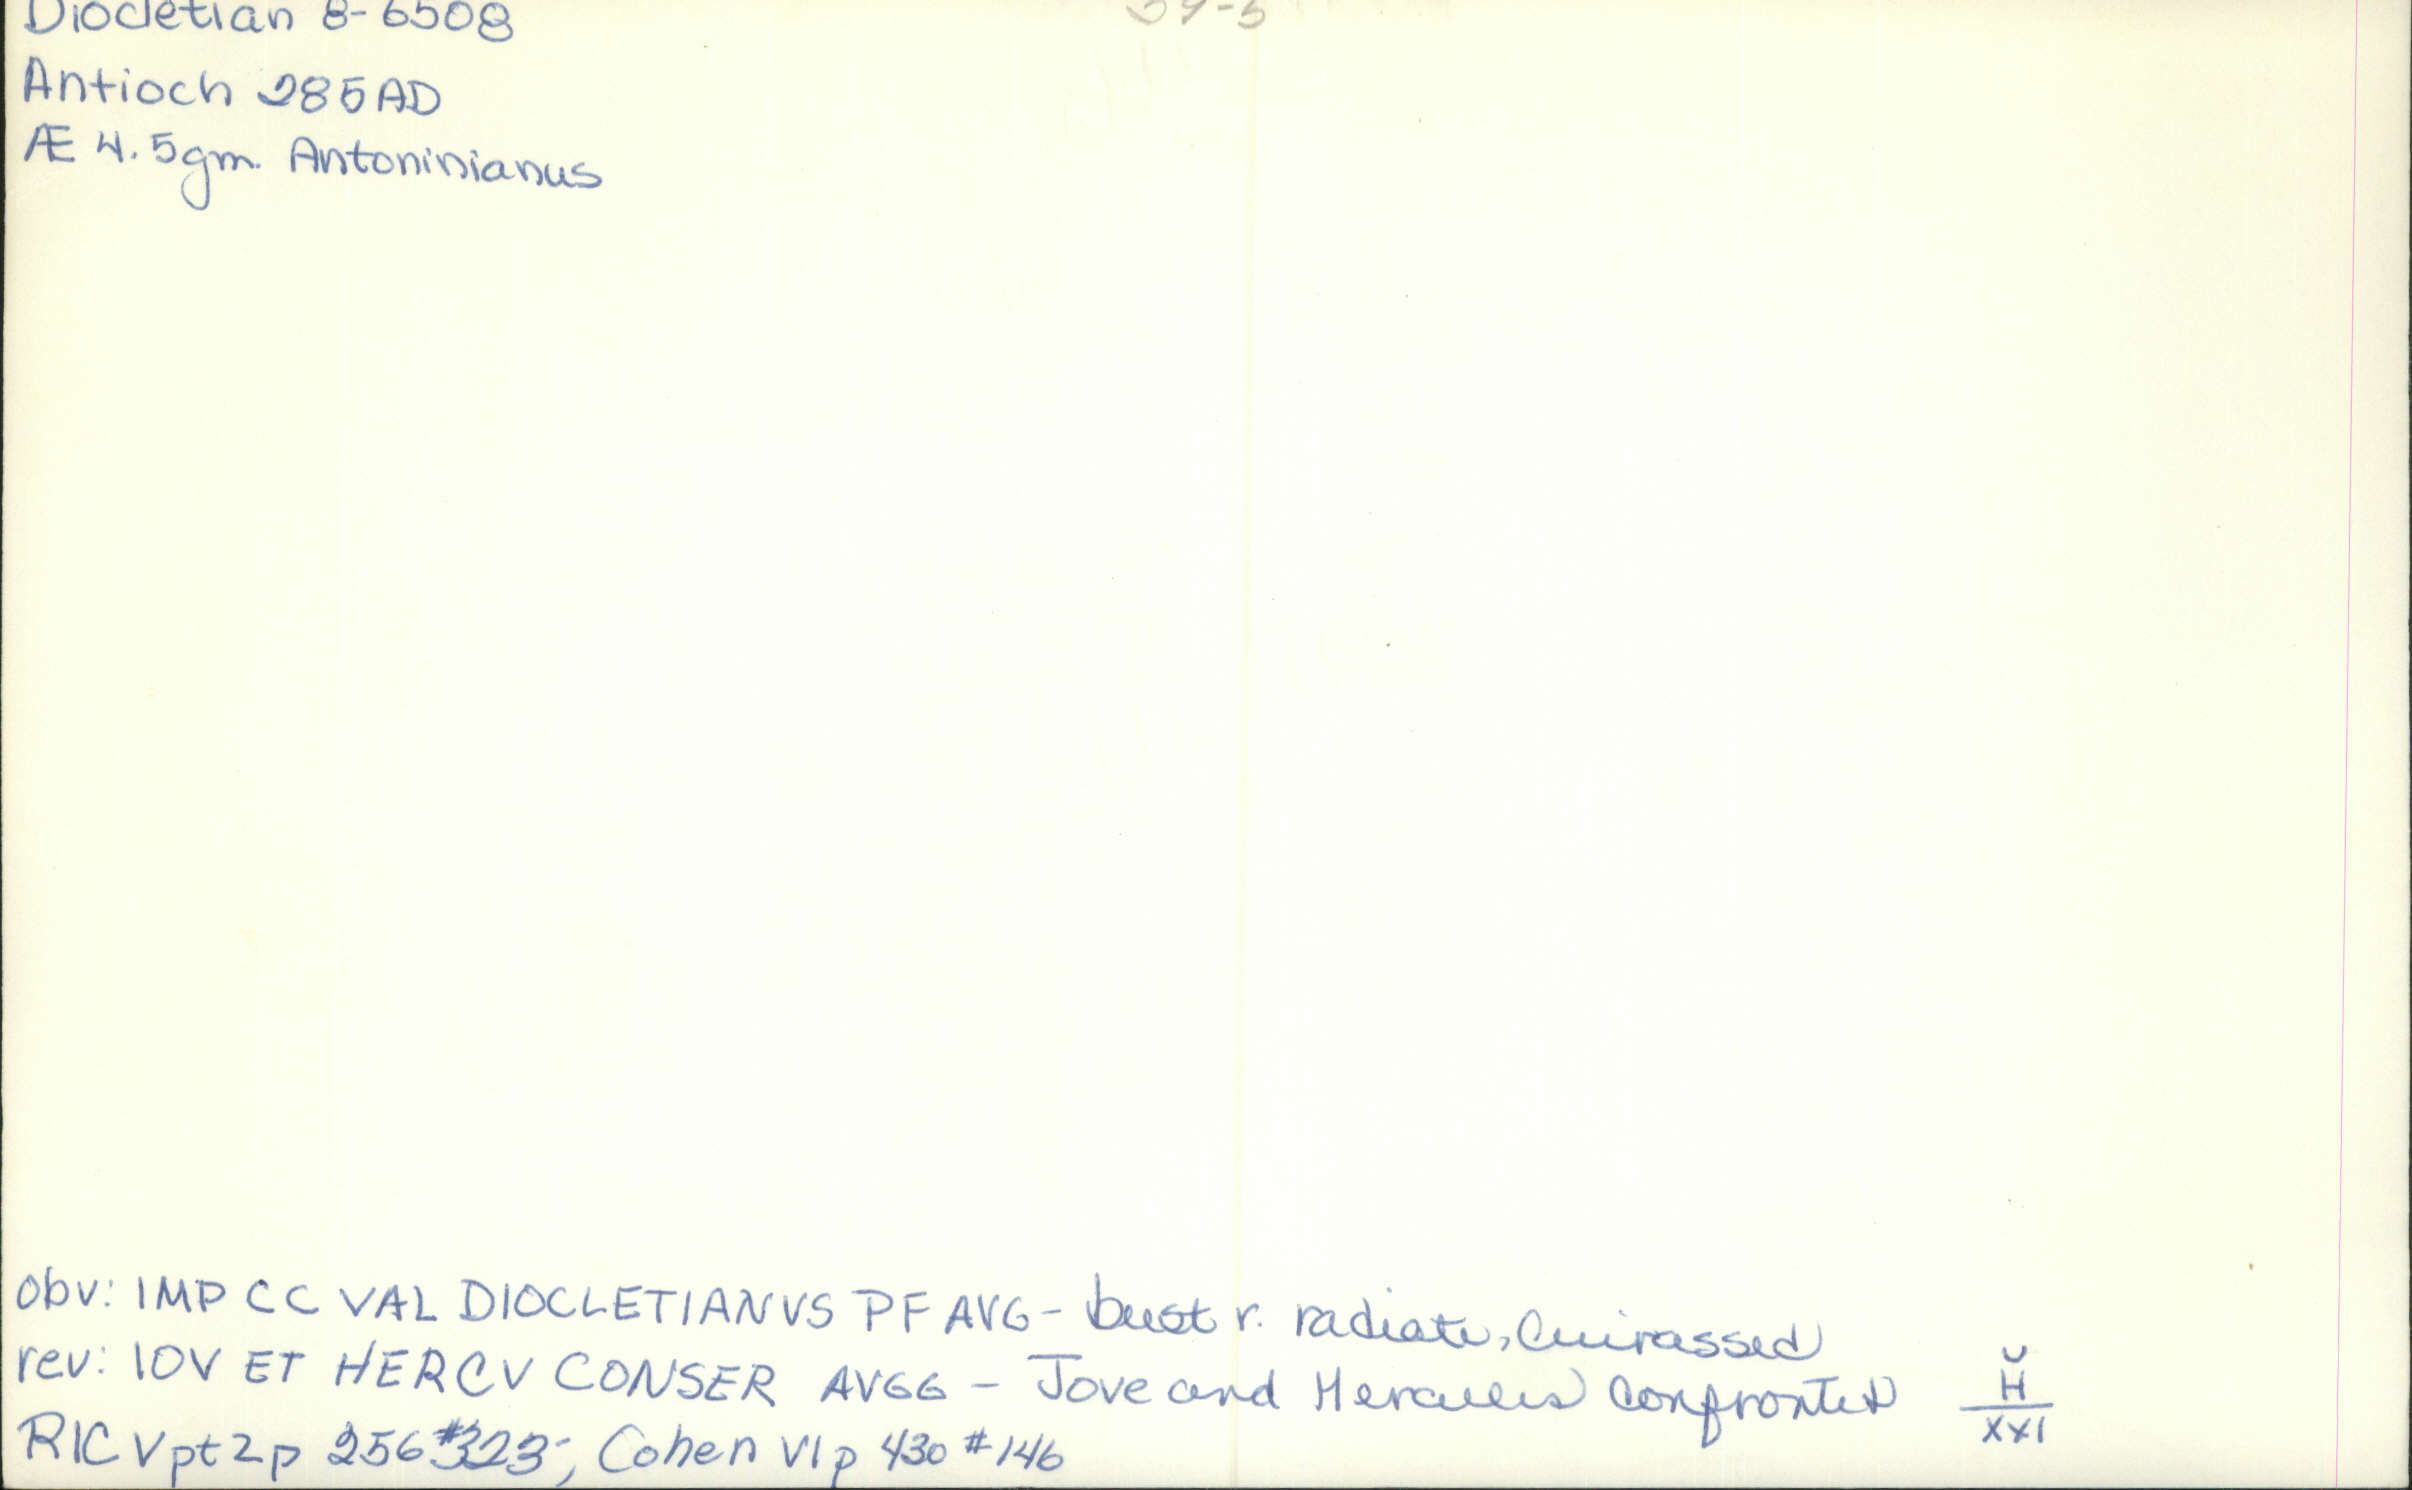 Diocletian 8-6508
59-5
Antioch 285AD
Æ 4.5gm. Antoninianus
obv: IMP CC VAL DIOCLETIANVS PF AVG - bust r. radiate, Cuirassed
rev: IOV ET HERCV CONSER AVGG - Jove and Hercules Confronted
H̆
XXI
RIC V pt 2 p 256 #323; Cohen VI p 430 #146